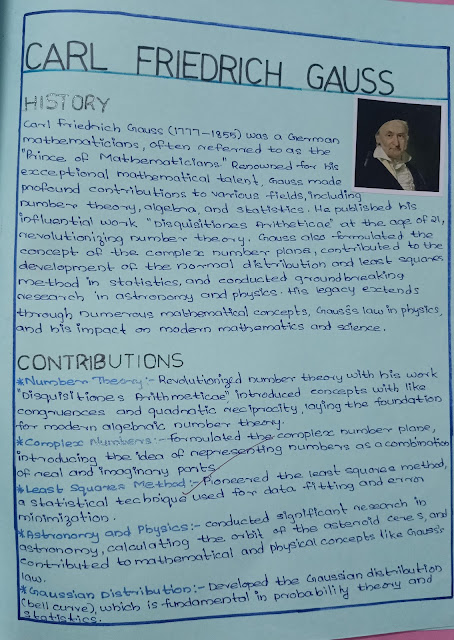 CARL FRIEDRICH GAUSS
HISTORY
Carl Friedrich Gauss (1777-1855) was a German
mathematicians, often referred to as the
"Prince of Mathematicians." Renowned for his
exceptional mathematical talent, Gauss made
profound contributions to various fields, including
number theory, algebra, and statistics. He published his
influential work "Disquisitiones Arithmeticae" at the age of 21,
revolutionizing number theory. Gauss also formulated the
concept of the complex number plane, contributed to the
development of the normal distribution and least squares
method in statistics, and conducted groundbreaking
research in astronomy and physics. His legacy extends
through numerous mathematical concepts, Gauss's law in physics,
and his impact on modern mathematics and science.
CONTRIBUTIONS
*Number Theory:- Revolutionized number theory with his work
"Disquisitiones Arithmeticae" introduced concepts with like
congruences and quadratic reciprocity, laying the foundation
for modern algebraic number theory.
*Complex Numbers:- formulated the complex number plane,
introducing the idea of representing numbers as a combination
of real and imaginary parts.
*Least Squares Method:- Pioneered the least squares method,
a statistical technique used for data fitting and error
minimization.
*Astronomy and Physics:- conducted significant research in
astronomy, calculating the orbit of the asteroid ceres, and
contributed to mathematical and physical concepts like Gauss's
law.
*Gaussian Distribution:- Developed the Gaussian distribution
(bell curve), which is fundamental in probability theory and
statistics.